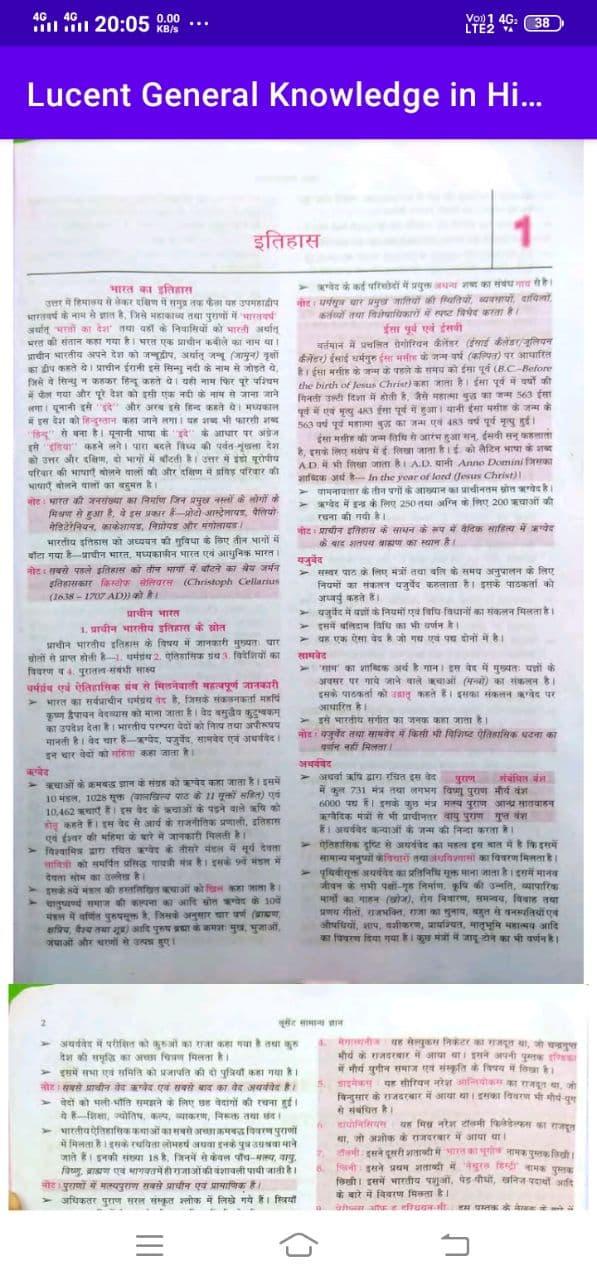 4G 4G 20:05 0.00 KB/s ...
Vo)) 1 4G: LTE2 38
Lucent General Knowledge in Hi...
इतिहास
1
भारत का इतिहास
उत्तर में हिमालय से लेकर दक्षिण में समुद्र तक फैला यह उपमहाद्वीप
भारतवर्ष के नाम से ज्ञात है, जिसे महाकाव्य तथा पुराणों में 'भारतवर्ष'
अर्थात् 'भरतों का देश' तथा यहाँ के निवासियों को भारती अर्थात्
भरत की संतान कहा गया है। भरत एक प्राचीन कबीले का नाम था।
प्राचीन भारतीय अपने देश को जम्बूद्वीप, अर्थात् जम्बू (जामुन) वृक्षों
का द्वीप कहते थे। प्राचीन ईरानी इसे सिन्धु नदी के नाम से जोड़ते थे,
जिसे वे सिन्धु न कहकर हिन्दू कहते थे। यही नाम फिर पूरे पश्चिम
में फैल गया और पूरे देश को इसी एक नदी के नाम से जाना जाने
लगा। यूनानी इसे "इंदे" और अरब इसे हिन्द कहते थे। मध्यकाल
में इस देश को हिन्दुस्तान कहा जाने लगा। यह शब्द भी फारसी शब्द
"हिन्दू" से बना है। यूनानी भाषा के "इंदे" के आधार पर अंग्रेज
इसे "इंडिया" कहने लगे।
भारतीय इतिहास को अध्ययन की सुविधा के लिए तीन भागों में
बाँटा गया है—प्राचीन भारत, मध्यकालीन भारत एवं आधुनिक भारत।
नोट : सबसे पहले इतिहास को तीन भागों में बाँटने का श्रेय जर्मन
इतिहासकार क्रिस्तोफ सेलियरस (Christoph Cellarius
(1638 - 1707 AD)) को है।
प्राचीन भारत
1. प्राचीन भारतीय इतिहास के स्रोत
प्राचीन भारतीय इतिहास के विषय में जानकारी मुख्यतः चार
स्रोतों से प्राप्त होती है—1. धर्मग्रंथ 2. ऐतिहासिक ग्रंथ 3. विदेशियों का
विवरण व 4. पुरातत्व-संबंधी साक्ष्य
धर्मग्रंथ एवं ऐतिहासिक ग्रंथ से मिलनेवाली महत्वपूर्ण जानकारी
➤ भारत का सर्वप्राचीन धर्मग्रंथ वेद है, जिसके संकलनकर्ता महर्षि
कृष्ण द्वैपायन वेदव्यास को माना जाता है। वेद बसुद्वैव कुटुम्बकम्
का उपदेश देता है। भारतीय परम्परा वेदों को नित्य तथा अपौरूषय
मानती है। वेद चार हैं—ऋग्वेद, यजुर्वेद, सामवेद एवं अथर्ववेद।
इन चार वेदों को संहिता कहा जाता है।
ऋग्वेद
➤ ऋचाओं के क्रमबद्ध ज्ञान के संग्रह को ऋग्वेद कहा जाता है। इसमें
10 मंडल, 1028 सूक्त (वालखिल्य पाठ के 11 सूक्तों सहित) एवं
10,462 ऋचाएँ हैं। इस वेद के ऋचाओं के पढ़ने वाले ऋषि को
होतृ कहते हैं। इस वेद से आर्य के राजनीतिक प्रणाली, इतिहास
एवं ईश्वर की महिमा के बारे में जानकारी मिलती है।
➤ विश्वामित्र द्वारा रचित ऋग्वेद के तीसरे मंडल में सूर्य देवता
सावित्री को समर्पित प्रसिद्ध गायत्री मंत्र है। इसके 9वें मंडल में
देवता सोम का उल्लेख है।
➤ इसके 8वें मंडल की हस्तलिखित ऋचाओं को खिल कहा जाता है।
➤ चातुष्वर्ण्य समाज की कल्पना का आदि स्रोत ऋग्वेद के 10वें
मंडल में वर्णित पुरुषसूक्त है, जिसके अनुसार चार वर्ण (ब्राह्मण,
क्षत्रिय, वैश्य तथा शूद्र) आदि पुरुष ब्रह्मा के क्रमशः मुख, भुजाओं,
जंघाओं और चरणों से उत्पन्न हुए।
➤ ऋग्वेद के कई परिच्छेदों में प्रयुक्त अघन्य शब्द का संबंध गाय से है।
ईसा पूर्व एवं ईसवी
वर्तमान में प्रचलित ग्रेगोरियन कैलेंडर (ईसाई कैलेंडर/जूलियन
कैलेंडर) ईसाई धर्मगुरु ईसा मसीह के जन्म वर्ष (कल्पित) पर आधारित
है। ईसा मसीह के जन्म के पहले के समय को ईसा पूर्व (B.C.-Before
the birth of Jesus Christ) कहा जाता है। ईसा पूर्व में वर्षों की
गिनती उल्टी दिशा में होती है, जैसे महात्मा बुद्ध का जन्म 563 ईसा
पूर्व में एवं मृत्यु 483 ईसा पूर्व में हुआ। यानी ईसा मसीह के जन्म के
563 वर्ष पूर्व महात्मा बुद्ध का जन्म एवं 483 वर्ष पूर्व मृत्यु हुई।
ईसा मसीह की जन्म तिथि से आरंभ हुआ सन्, ईसवी सन् कहलाता
है, इसके लिए संक्षेप में ई. लिखा जाता है। ई. को लैटिन भाषा के शब्द
A.D. में भी लिखा जाता है। A.D. यानी Anno Domini जिसका
शाब्दिक अर्थ है— In the year of lord (Jesus Christ)।
➤ वामनावतार के तीन पगों के आख्यान का प्राचीनतम स्रोत ऋग्वेद है।
➤ ऋग्वेद में इन्द्र के लिए 250 तथा अग्नि के लिए 200 ऋचाओं की
रचना की गयी है।
नोट : प्राचीन इतिहास के साधन के रूप में वैदिक साहित्य में ऋग्वेद
के बाद शतपथ ब्राह्मण का स्थान है।
यजुर्वेद
➤ सस्वर पाठ के लिए मंत्रों तथा बलि के समय अनुपालन के लिए
नियमों का संकलन यजुर्वेद कहलाता है। इसके पाठकर्ता को
अध्वर्यु कहते हैं।
➤ यजुर्वेद में यज्ञों के नियमों एवं विधि विधानों का संकलन मिलता है।
➤ इसमें बलिदान विधि का भी वर्णन है।
➤ यह एक ऐसा वेद है जो गद्य एवं पद्य दोनों में है।
सामवेद
➤ 'साम' का शाब्दिक अर्थ है गान। इस वेद में मुख्यतः यज्ञों के
अवसर पर गाये जाने वाले ऋचाओं (मंत्रों) का संकलन है।
इसके पाठकर्ता को उद्रातृ कहते हैं। इसका संकलन ऋग्वेद पर
आधारित है।
➤ इसे भारतीय संगीत का जनक कहा जाता है।
नोट : यजुर्वेद तथा सामवेद में किसी भी विशिष्ट ऐतिहासिक घटना का
वर्णन नहीं मिलता।
अथर्ववेद
➤ अथर्वा ऋषि द्वारा रचित इस वेद
में कुल 731 मंत्र तथा लगभग
6000 पद्य हैं। इसके कुछ मंत्र
ऋग्वैदिक मंत्रों से भी प्राचीनतर
हैं। अथर्ववेद कन्याओं के जन्म की निन्दा करता है।
पुराण संबंधित वंश
विष्णु पुराण मौर्य वंश
मत्स्य पुराण आन्ध्र सातवाहन
वायु पुराण गुप्त वंश
➤ ऐतिहासिक दृष्टि से अथर्ववेद का महत्व इस बात में है कि इसमें
सामान्य मनुष्यों के विचारों तथा अंधविश्वासों का विवरण मिलता है।
➤ पृथिवीसूक्त अथर्ववेद का प्रतिनिधि सूक्त माना जाता है। इसमें मानव
जीवन के सभी पक्षों-गृह निर्माण, कृषि की उन्नति, व्यापारिक
मार्गों का गाहन (खोज), रोग निवारण, समन्वय, विवाह तथा
प्रणय गीतों, राजभक्ति, राजा का चुनाव, बहुत से वनस्पतियों एवं
औषधियों, शाप, वशीकरण, प्रायश्चित, मातृभूमि महात्मय आदि
का विवरण दिया गया है। कुछ मंत्रों में जादू-टोने का भी वर्णन है।
2
लूसेंट सामान्य ज्ञान
➤ अथर्ववेद में परीक्षित को कुरुओं का राजा कहा गया है तथा कुरु
देश की समृद्धि का अच्छा चित्रण मिलता है।
➤ इसमें सभा एवं समिति को प्रजापति की दो पुत्रियाँ कहा गया है।
नोट : सबसे प्राचीन वेद ऋग्वेद एवं सबसे बाद का वेद अथर्ववेद है।
➤ वेदों को भली-भाँति समझने के लिए छह वेदांगों की रचना हुई।
ये हैं—शिक्षा, ज्योतिष, कल्प, व्याकरण, निरूक्त तथा छंद।
➤ भारतीय ऐतिहासिक कथाओं का सबसे अच्छा क्रमबद्ध विवरण पुराणों
में मिलता है। इसके रचयिता लोमहर्ष अथवा इनके पुत्र उग्रश्रवा माने
जाते हैं। इनकी संख्या 18 है, जिनमें से केवल पाँच—मत्स्य, वायु,
विष्णु, ब्राह्मण एवं भागवत में ही राजाओं की वंशावली पायी जाती है।
नोट : पुराणों में मत्स्यपुराण सबसे प्राचीन एवं प्रामाणिक है।
➤ अधिकतर पुराण सरल संस्कृत श्लोक में लिखे गये हैं। स्त्रियाँ
4. मेगास्थनीज : यह सेल्युकस निकेटर का राजदूत था, जो चन्द्रगुप्त
मौर्य के राजदरबार में आया था। इसने अपनी पुस्तक इण्डिका
में मौर्य युगीन समाज एवं संस्कृति के विषय में लिखा है।
5. डाइमेकस : यह सीरियन नरेश आन्तियोकस का राजदूत था, जो
बिन्दुसार के राजदरबार में आया था। इसका विवरण भी मौर्य-युग
से संबंधित है।
6. डायोनिसियस : यह मिस्र नरेश टॉलमी फिलेडेल्फस का राजदूत
था, जो अशोक के राजदरबार में आया था।
7. टॉलमी : इसने दूसरी शताब्दी में 'भारत का भूगोल' नामक पुस्तक लिखी।
8. प्लिनी : इसने प्रथम शताब्दी में 'नेचुरल हिस्ट्री' नामक पुस्तक
लिखी। इसमें भारतीय पशुओं, पेड़-पौधों, खनिज पदार्थों आदि
के बारे में विवरण मिलता है।